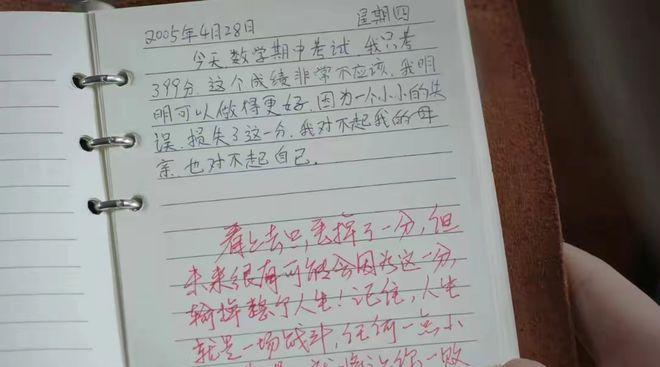 2005年4月28日 星期四
今天数学期中考试 我只考
了99分.这个成绩非常不应该.我明
明可以做得更好.因为一个小小的失
误.损失了这一分.我对不起我的母
亲.也对不起自己.
看上去只丢掉了一分,但
未来很有可能会因为这一分,
输掉整个人生!记住,人生
就是一场战斗,任何一点小
你一败